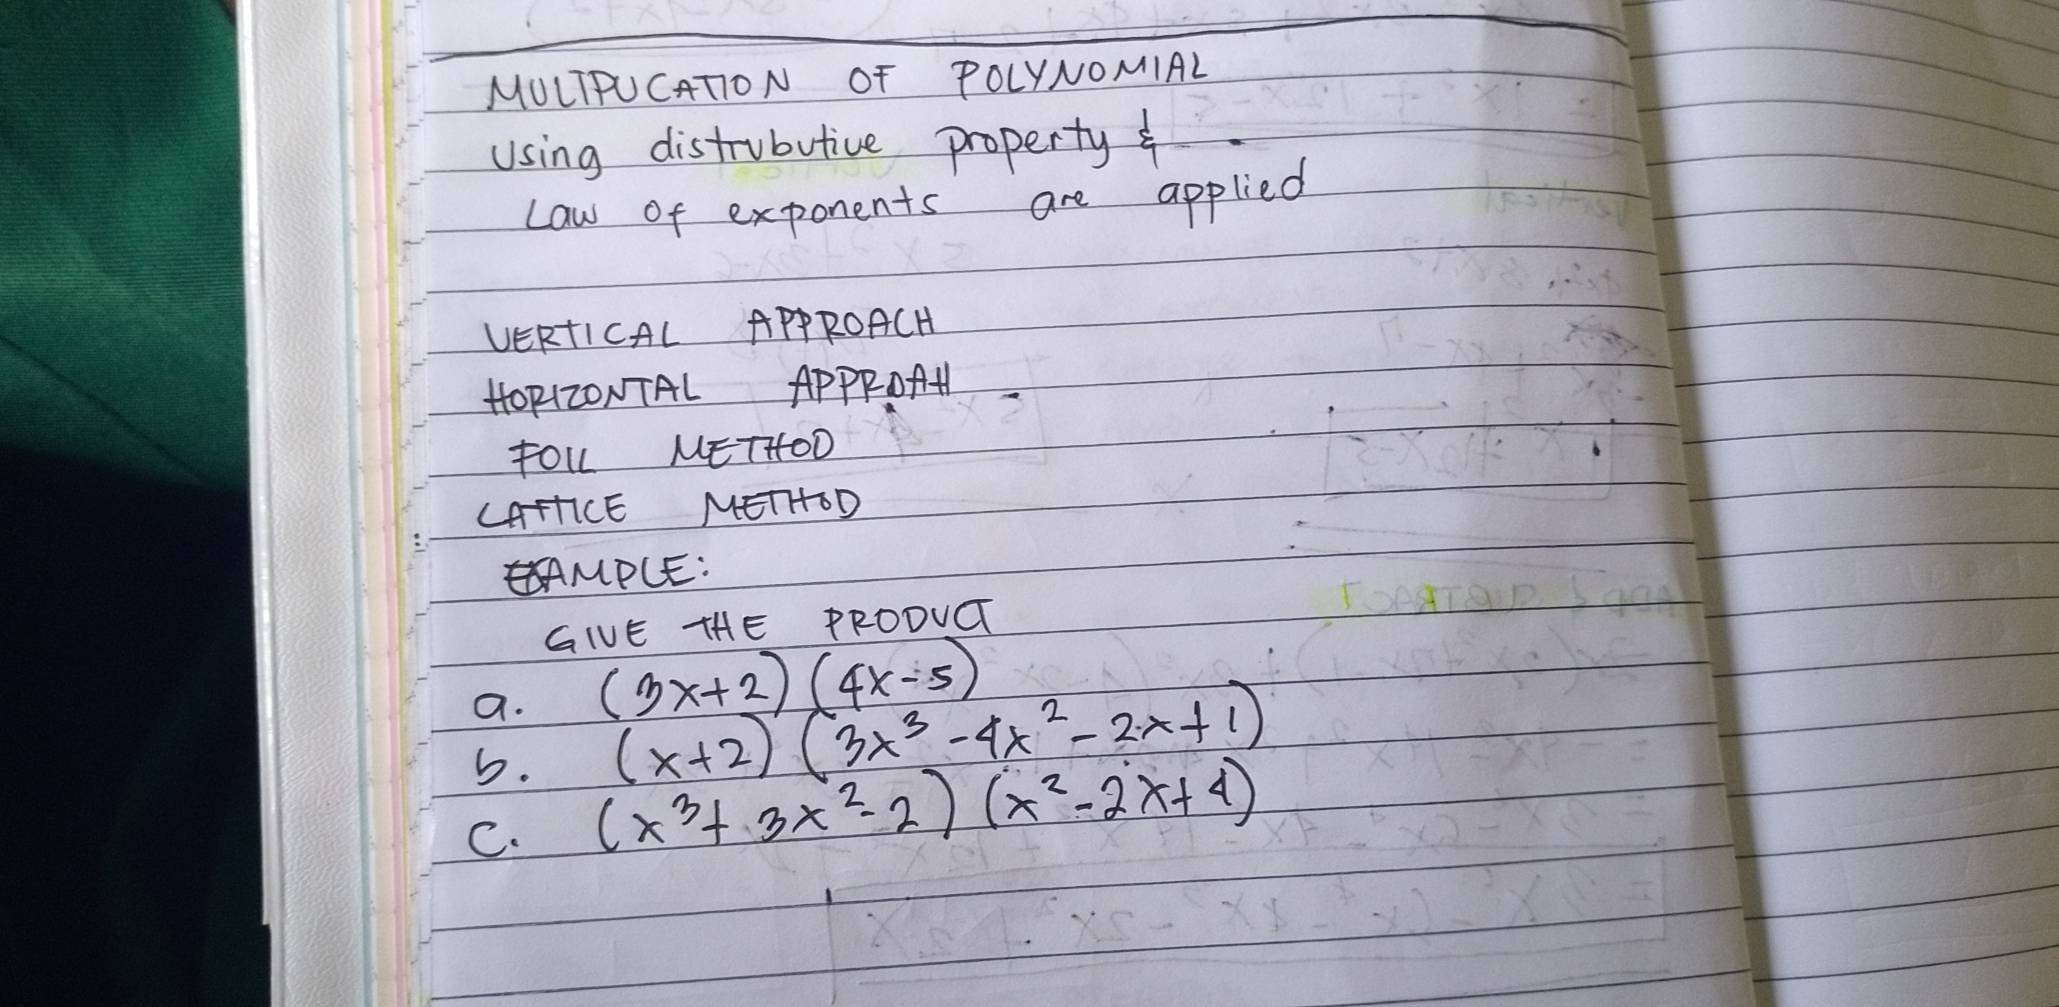 MULTPUCATION OF POLYNOMIAL
Using distrubutive property &
Law of exponents are applied
VERTICAL APPROACH
HORIZONTAL APPROAH
FOIL METHOD
LATTICE METHOD
EXAMPLE:
GIVE THE PRODUCT
a. (3x+2)(4x-5)
b. (x+2)(3x³-4x²-2x+1)
c. (x³+3x²-2)(x²-2x+4)